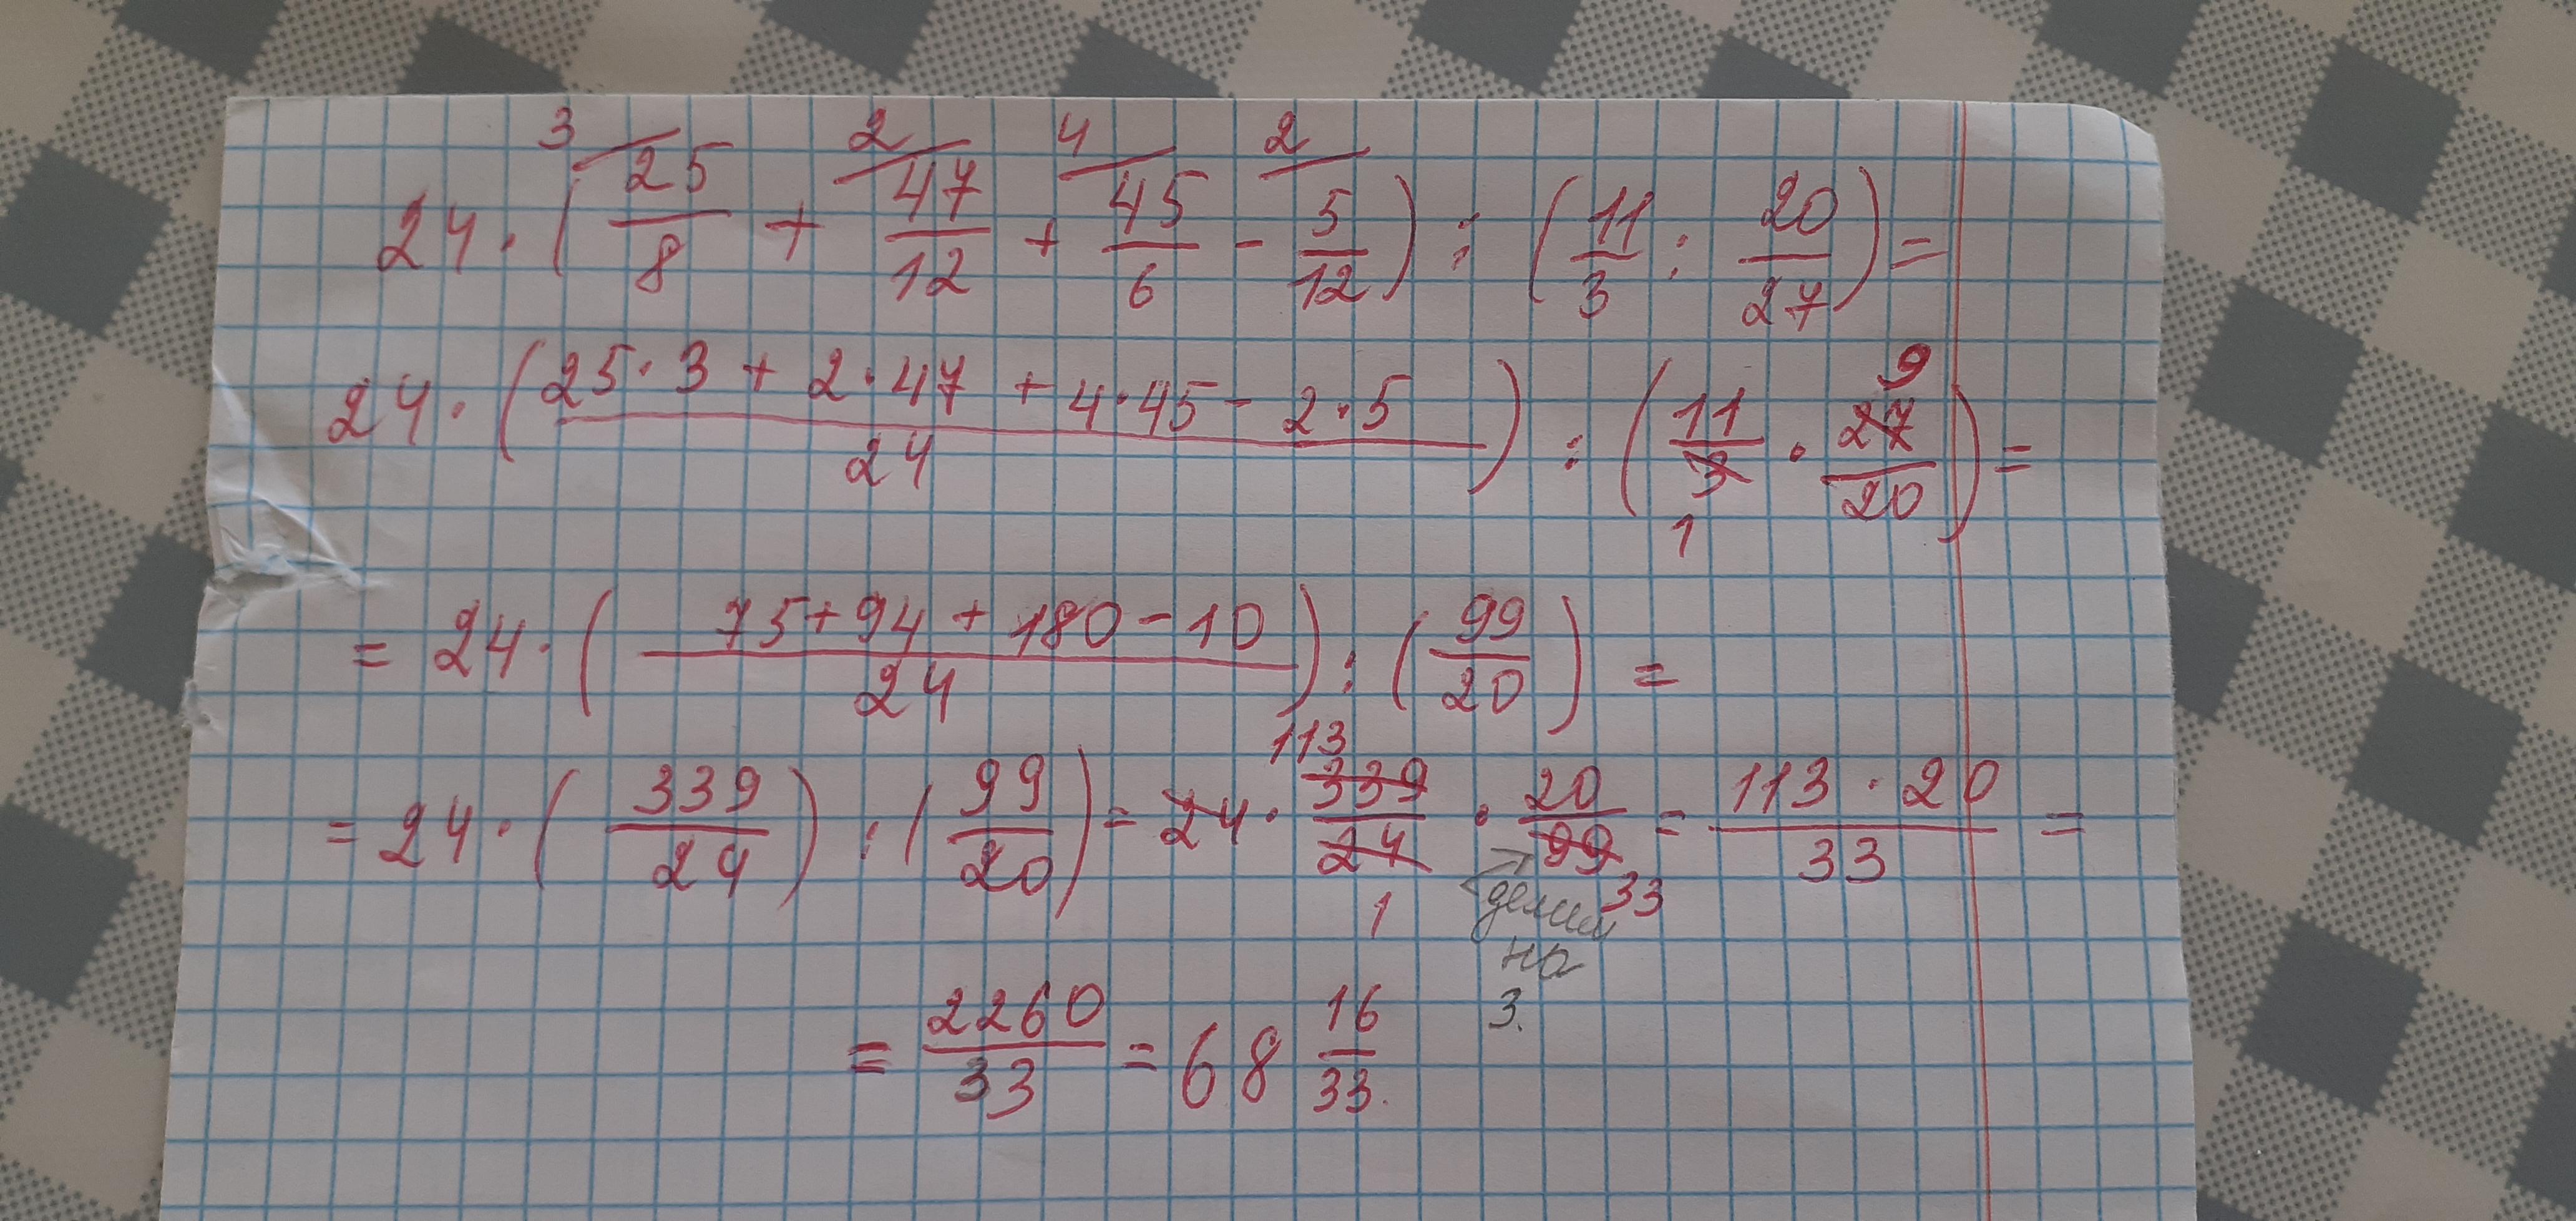 3/ 2/ 4/ 2/
24 · (25/8 + 47/12 + 45/6 - 5/12) : (11/3 : 20/27) =
24 · (25·3 + 2·47 + 4·45 - 2·5 / 24) : (11/3 · 27/20) =
9
1
= 24 · (75+94+180-10 / 24) : (99/20) =
= 24 · (339/24) : (99/20) = 24 · 339/24 · 20/99 = 113·20/33 =
113
1
33
делим
на
3.
= 2260/33 = 68 16/33.